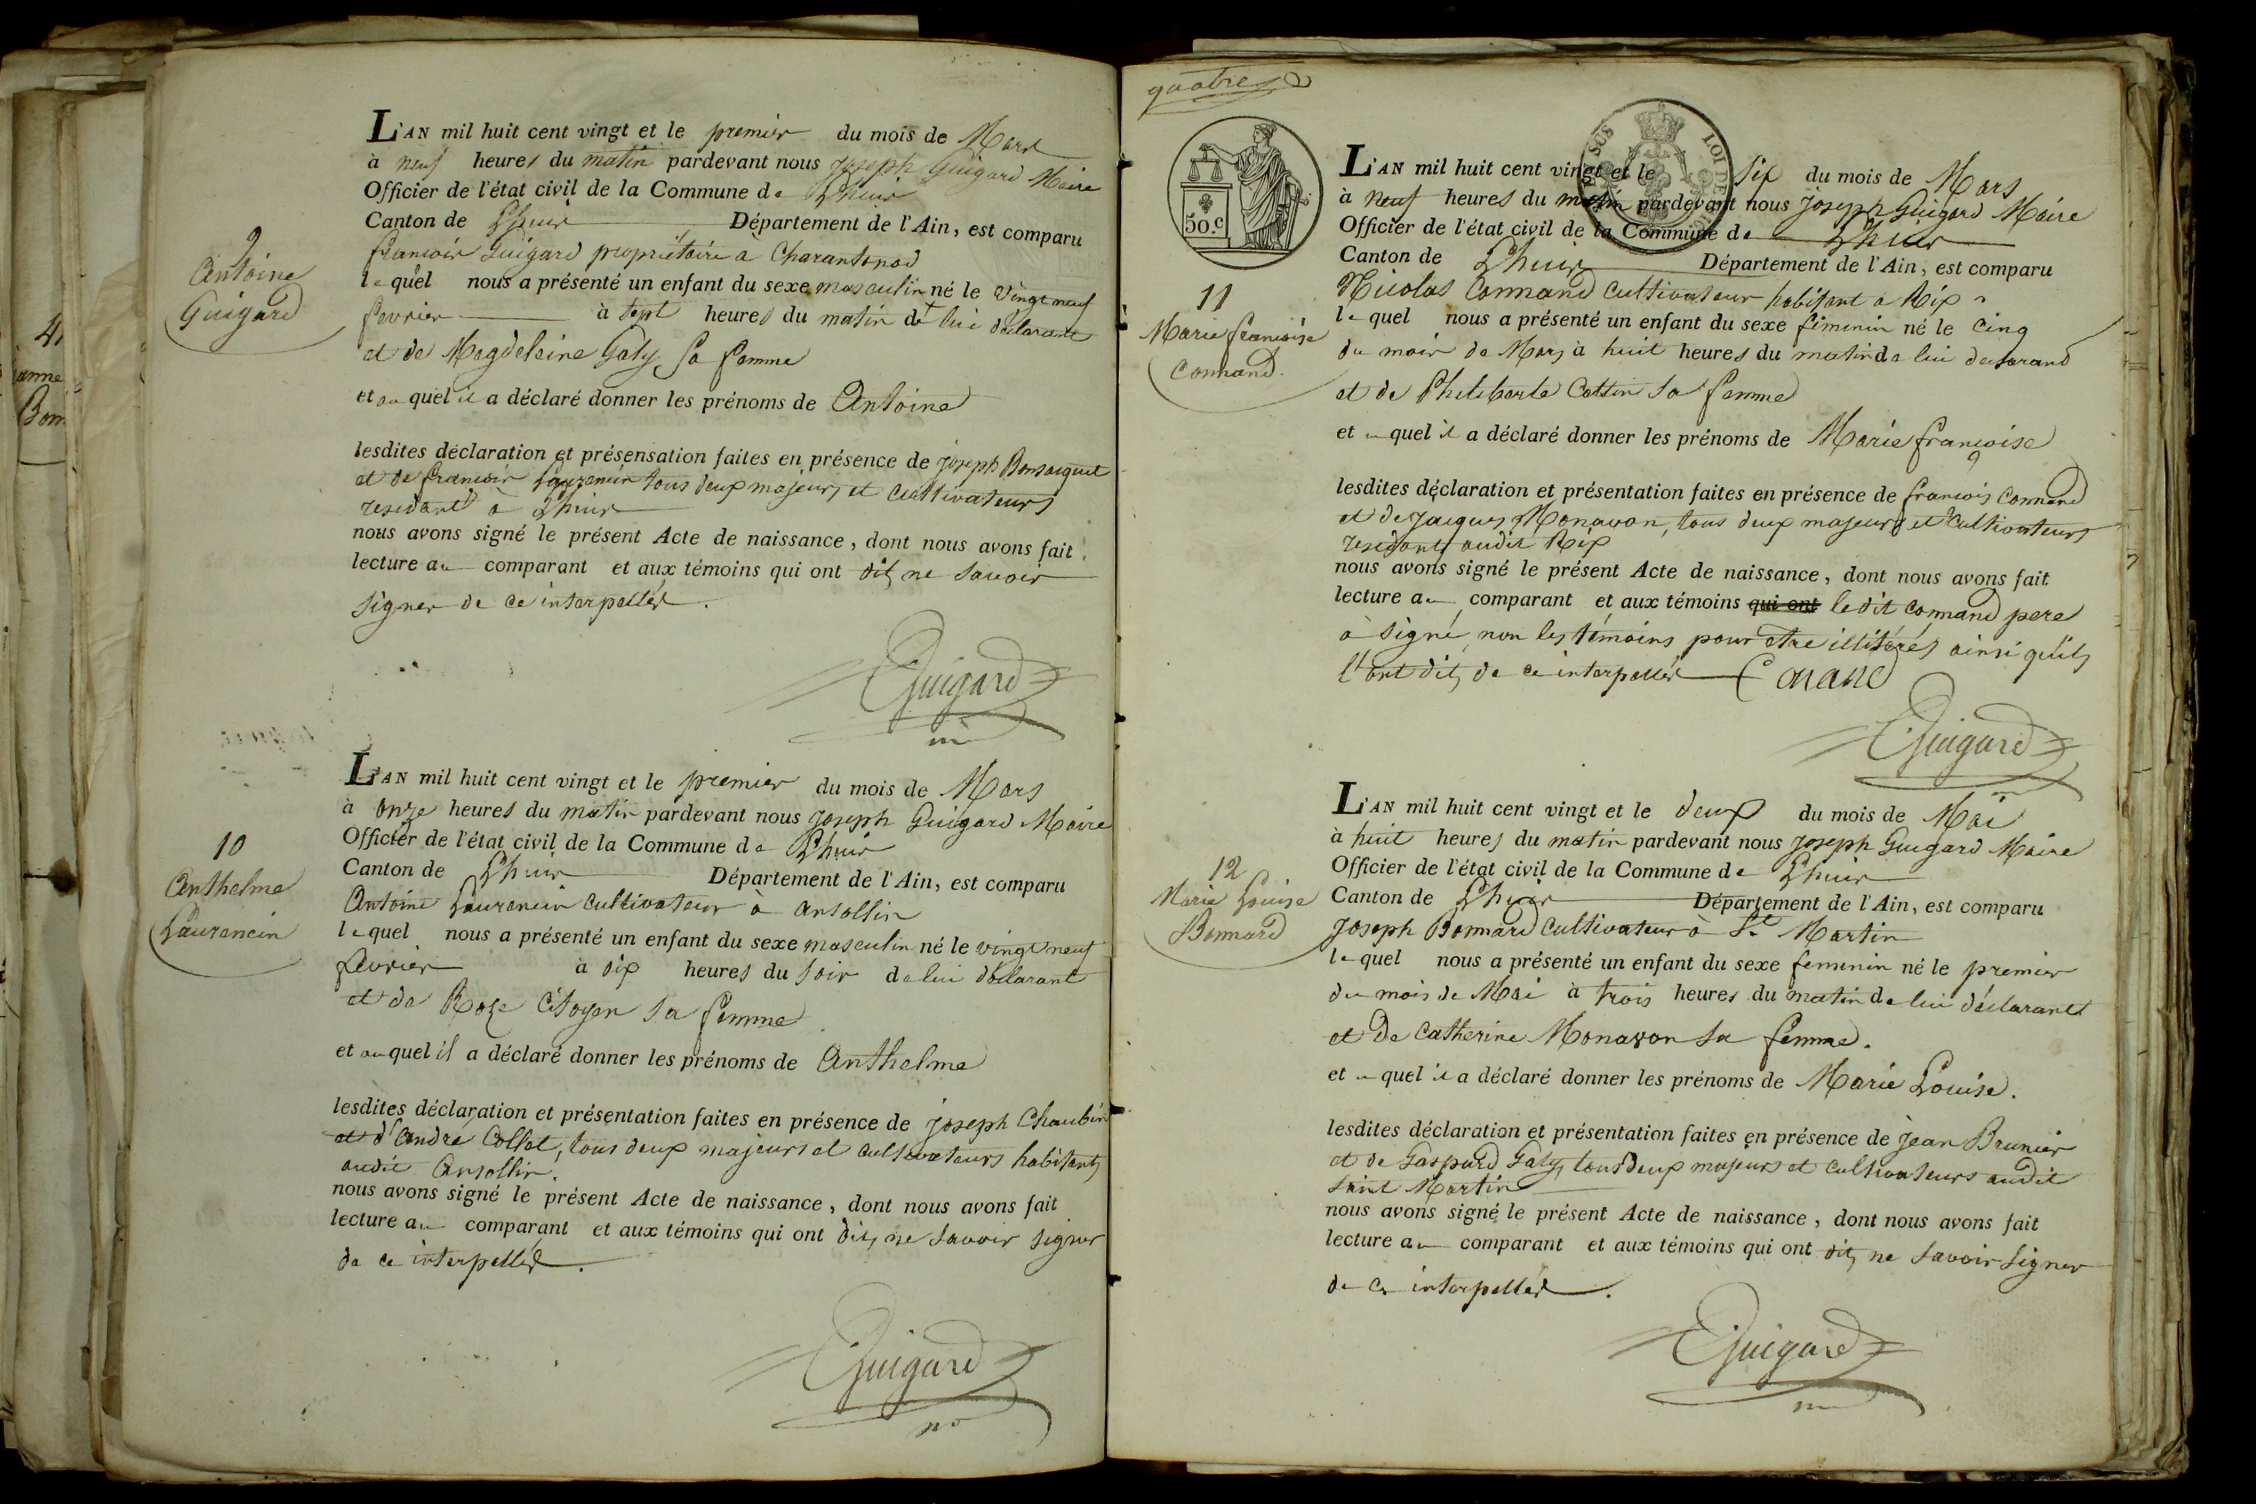 9
Antoine
Guigard
L'AN mil huit cent vingt et le premier du mois de Mars
à neuf heures du matin pardevant nous joseph Guigard Maire
Officier de l'état civil de la Commune de Lhuis
Canton de Lhuis Département de l'Ain, est comparu
francois Guigard propriétaire à Charantonod
le quel nous a présenté un enfant du sexe masculin né le vingt neuf
fevrier à sept heures du matin de lui déclarant
et de Magdeleine Galy sa femme
et au quel il a déclaré donner les prénoms de Antoine
lesdites déclaration et présensation faites en présence de joseph
et de francois Laurencin tous deux majeurs et cultivateurs
residants à Lhuis
nous avons signé le présent Acte de naissance, dont nous avons fait
lecture au comparant et aux témoins qui ont dits ne savoir
signer de ce interpellés.
Guigard
10
Anthelme
Laurencin
L'AN mil huit cent vingt et le premier du mois de Mars
à onze heures du matin pardevant nous joseph Guigard Maire
Officier de l'état civil de la Commune de Lhuis
Canton de Lhuis Département de l'Ain, est comparu
Antoine Laurencin cultivateur à ansollin
le quel nous a présenté un enfant du sexe masculin né le vingt neuf
fevrier à six heures du soir de lui déclarant
et de Roze Citoyen sa femme
et au quel il a déclaré donner les prénoms de Anthelme
lesdites déclaration et présentation faites en présence de joseph Chaubin
et d'andré Collet, tous deux majeurs et cultivateurs habitants
audit ansollin.
nous avons signé le présent Acte de naissance, dont nous avons fait
lecture au comparant et aux témoins qui ont dits ne savoir signer
de ce interpellés.
Guigard
quatre
50.c
LOI DE
11
Marie francoise
Connand
L'AN mil huit cent vingt et le six du mois de Mars
à neuf heures du matin pardevant nous joseph Guigard Maire
Officier de l'état civil de la Commune de Lhuis
Canton de Lhuis Département de l'Ain, est comparu
Nicolas Connand cultivateur habitant a Rix
le quel nous a présenté un enfant du sexe féminin né le cinq
du mois de Mars à huit heures du matin de lui declarand
et de Philiberte Cottin sa femme
et au quel il a déclaré donner les prénoms de Marie francoise
lesdites déclaration et présentation faites en présence de francois Connand
et de jacques Monavon, tous deux majeurs et cultivateurs
residants audit Rix
nous avons signé le présent Acte de naissance, dont nous avons fait
lecture au comparant et aux témoins qui ont le dit connand pere
à signé, non les témoins pour etre illitérés ainsi qu'ils
l'ont dits de ce interpellés Conand
Guigard
12
Marie Louise
Bonnard
L'AN mil huit cent vingt et le deux du mois de Mai
à huit heures du matin pardevant nous joseph Guigard Maire
Officier de l'état civil de la Commune de Lhuis
Canton de Lhuis Département de l'Ain, est comparu
joseph Bonnard cultivateur à St. Martin
le quel nous a présenté un enfant du sexe feminin né le premier
du mois de Mai à trois heures du matin de lui déclarant
et de Catherine Monavon sa femme.
et au quel il a déclaré donner les prénoms de Marie Louise.
lesdites déclaration et présentation faites en présence de jean Brunier
et de Gaspard Galy, tous deux majeurs et cultivateurs audit
saint Martin
nous avons signé le présent Acte de naissance, dont nous avons fait
lecture au comparant et aux témoins qui ont dits ne savoir signer
de ce interpellés.
Guigard